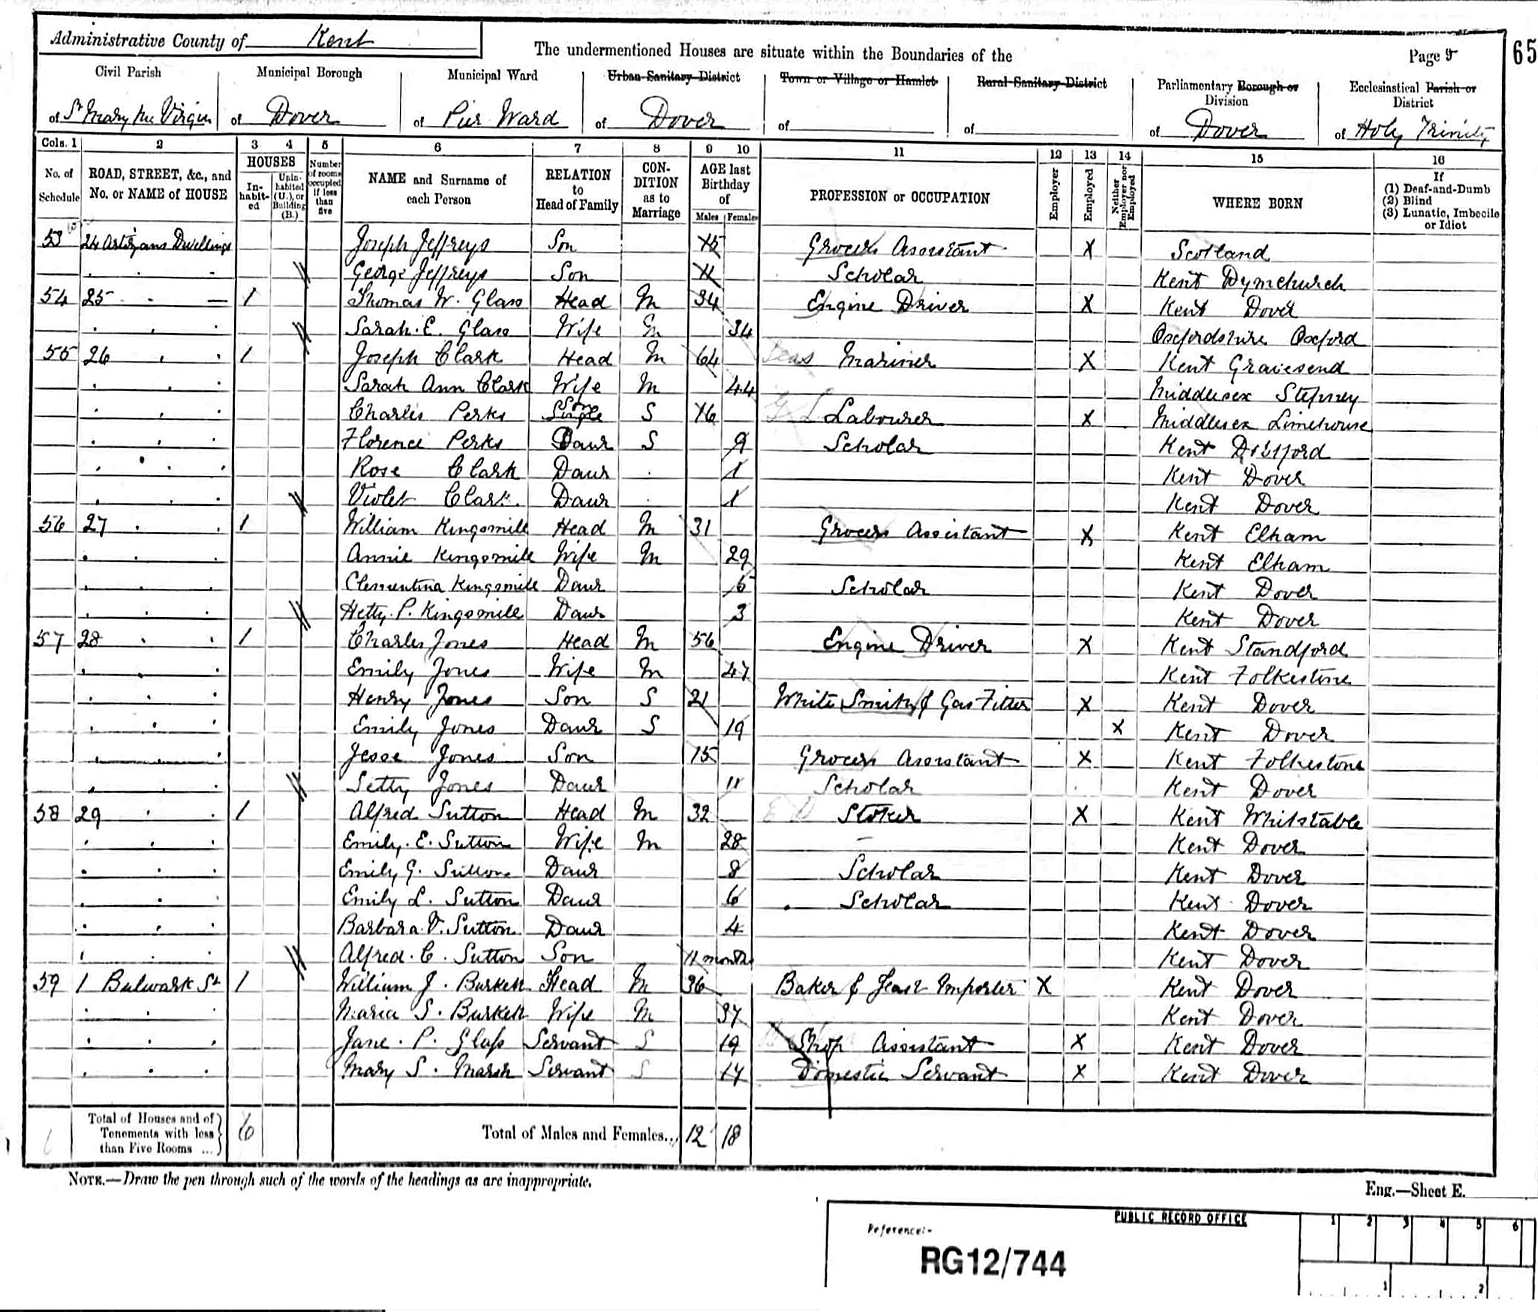 Administrative County of Kent
The undermentioned Houses are situate within the Boundaries of the
Page 9
65
Civil Parish Municipal Borough Municipal Ward Urban Sanitary District Town or Village or Hamlet Rural Sanitary District Parliamentary Borough or Division Ecclesiastical Parish or District
of St Mary the Virgin of Dover of Pier Ward of Dover of of of Dover of Holy Trinity
Cols. 1 2 3 4 5 6 7 8 9 10 11 12 13 14 15 16
No. of Schedule ROAD, STREET, &c., and No. or NAME of HOUSE HOUSES Inhabited Uninhabited (U.), or Building (B.) Number of rooms occupied if less than five NAME and Surname of each Person RELATION to Head of Family CONDITION as to Marriage AGE last Birthday of Males Females PROFESSION or OCCUPATION Employer Employed Neither Employer nor Employed WHERE BORN If (1) Deaf-and-Dumb (2) Blind (3) Lunatic, Imbecile or Idiot
53 24 Artizans Dwellings Joseph Jeffreys Son 15 Grocers Assistant X Scotland
George Jeffreys Son 11 Scholar Kent Dymchurch
54 25 1 Thomas W. Glass Head M 34 Engine Driver X Kent Dover
Sarah. E. Glass Wife M 34 Oxfordshire Oxford
55 26 1 Joseph Clark Head M 64 Seas Mariner X Kent Gravesend
Sarah Ann Clark Wife M 44 Middlesex Stepney
Charles Perks Son S 16 G L Labourer X Middlesex Limehouse
Florence Perks Daur S 9 Scholar Kent
Rose Clark Daur 1 Kent Dover
Violet Clark Daur 1 Kent Dover
56 27 1 William Kingsmill Head M 31 Grocers Assistant X Kent Elham
Annie Kingsmill Wife M 29 Kent Elham
Clementina Kingsmill Daur 5 Scholar Kent Dover
Hetty. P. Kingsmill Daur 3 Kent Dover
57 28 1 Charles Jones Head M 56 Engine Driver X Kent Standford
Emily Jones Wife M 47 Kent Folkestone
Henry Jones Son S 21 White Smith & Gas Fitter X Kent Dover
Emily Jones Daur S 19 X Kent Dover
Jesse Jones Son 15 Grocers Assistant X Kent Folkestone
Jones Daur 11 Scholar Kent Dover
58 29 1 Alfred Sutton Head M 32 Stoker X Kent Whitstable
Emily. E. Sutton Wife M 28 Kent Dover
Emily G. Sutton Daur 8 Scholar Kent Dover
Emily L. Sutton Daur 6 Scholar Kent Dover
Barbara V. Sutton Daur 4 Kent Dover
Alfred. C. Sutton Son 11 months Kent Dover
59 1 Bulwark St 1 William J. Burkett Head M 36 Baker & Yeast Importer X Kent Dover
Maria S. Burkett Wife M 37 Kent Dover
Jane. P. Glass Servant S 19 Shop Assistant X Kent Dover
Mary S. Marsh Servant S 17 Domestic Servant X Kent Dover
Total of Houses and of Tenements with less than Five Rooms ... 6 Total of Males and Females... 12 18
NOTE.—Draw the pen through such of the words of the headings as are inappropriate.
Eng.—Sheet E.
PUBLIC RECORD OFFICE
Reference:-
RG12/744
1 2 3 4 5 6
1 2